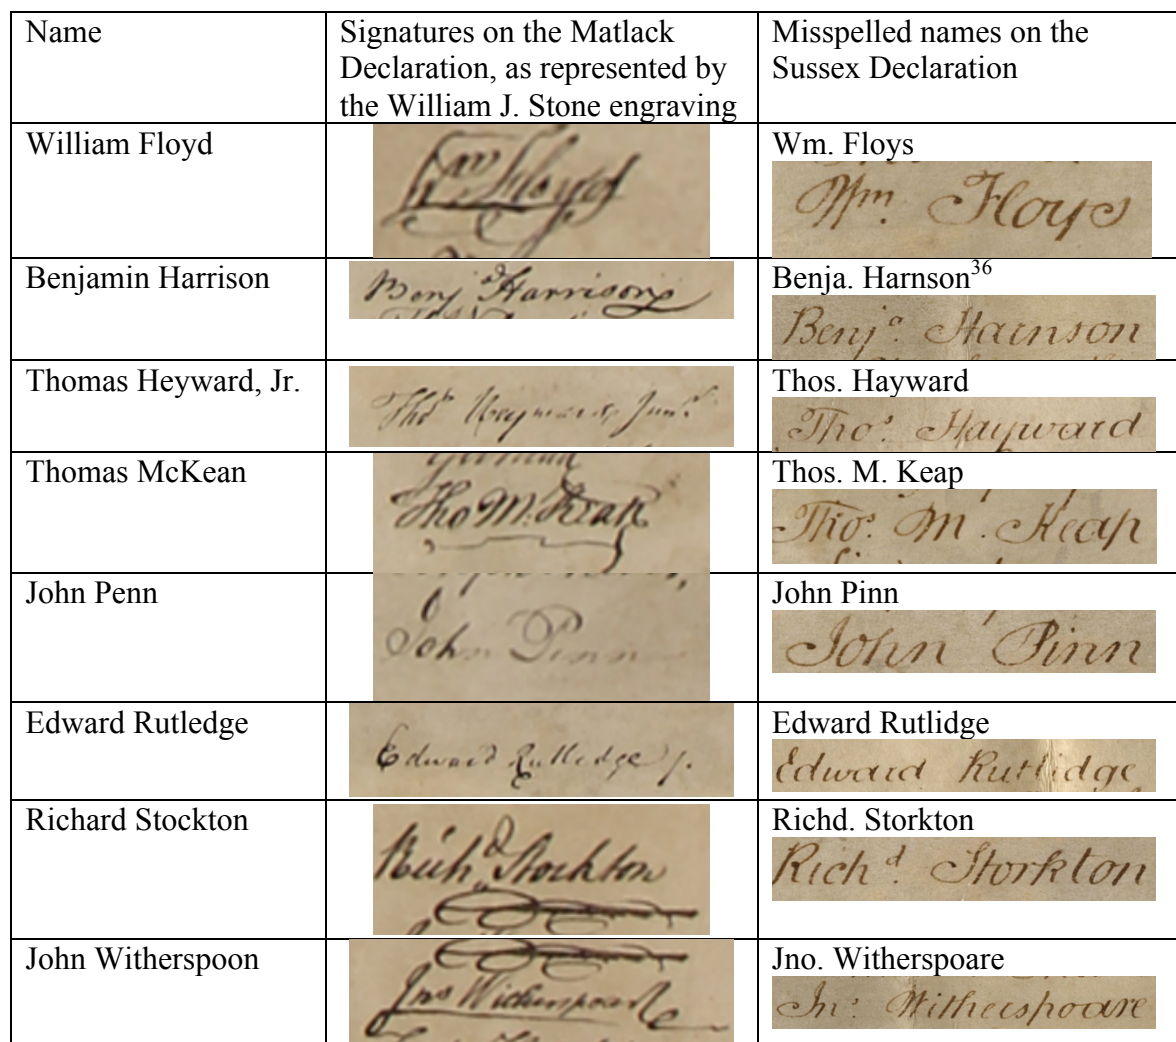 Name
Signatures on the Matlack
Declaration, as represented by
the William J. Stone engraving
Misspelled names on the
Sussex Declaration
William Floyd
Wm Floyd
Wm. Floys
Wm. Floys
Benjamin Harrison
Benja Harrison
Benja. Harnson36
Benja. Harnson
Thomas Heyward, Jr.
Thos Heyward Junr.
Thos. Hayward
Thos. Hayward
Thomas McKean
Tho M. Kean
Thos. M. Keap
Thos. M. Keap
John Penn
John Penn
John Pinn
John Pinn
Edward Rutledge
Edward Rutledge /.
Edward Rutlidge
Edward Rutlidge
Richard Stockton
Richd Stockton
Richd. Storkton
Richd. Storkton
John Witherspoon
Jno Witherspoon
Jno. Witherspoare
Jno. Witherspoare